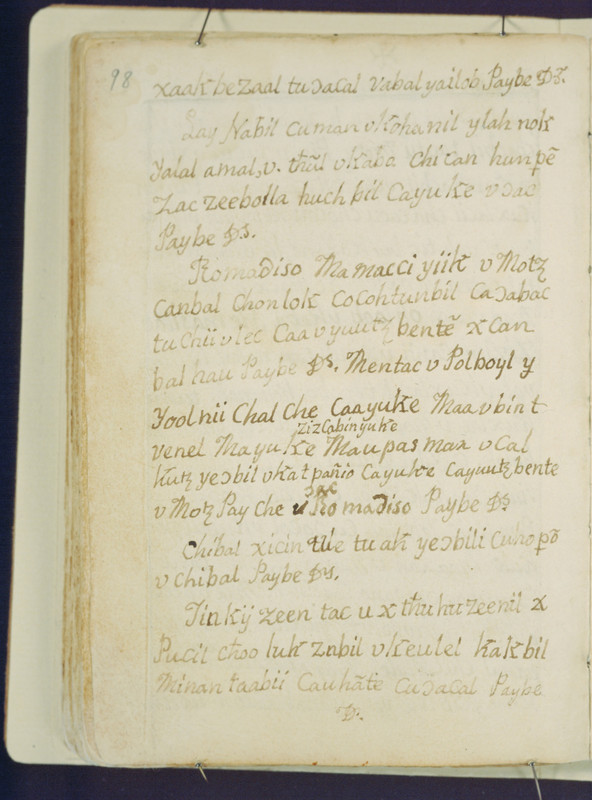 98
xaak be zaal tu ɔacal vabal yailob Paybe Ds.
Lay Nabil cuman v kohanil ylah nok
yalal amal, v. thũl v kaba chi can hunpẽ
zac zeebolla huch bil Cayuke v ɔac
Paybe Ds.
Romadiso Mamacci yiik v Motz
canbal Chonlok Cocohtunbil Caɔabac
tu Chii v lec Caa v yuutz bentẽ x Can
bal hau Paybe Ds. Mentac v Polboyl y
Yoolnii Chal che Caayuke Maa v bin t
zizcabinyuke
venel Mayuke Maupas max v Cal
kutz yeɔbil v kat pañio Cayuke Cayuutz bente
ɔac
v Motz Pay che u Romadiso Paybe Ds
Chibal xicin tlie tu ak yeɔbili Cuho põ
v chibal Paybe Ds.
Tin kij zeen tac u x thuhuzeenil x
Pucil choo luk znbil v keulel kakbil
Minan taabii Cauhãte Cuɔacal Paybe
D.